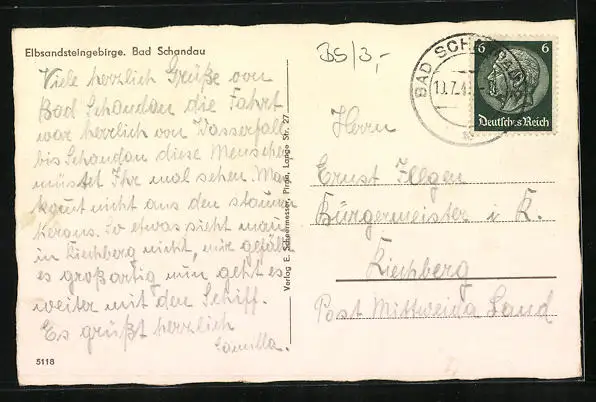 Elbsandsteingebirge. Bad Schandau
Viele herzlich Grüße von
Bad Schandau die Fahrt
war herrlich von Wasserfall
bis Schandau diese Menschen
müstet Ihr mal sehen. Man
komt nicht aus den staunen
heraus. So etwas sieht man
in nicht, mir gefällt
es großartig nun geht es
weiter mit den Schiff.
Es grüßt herzlich
Camilla.
5118
Verlag E. Pirna, Lange Str. 27
BS/3,-
BAD SCHANDAU
10.7.4
6 6
Deutsches Reich
Herrn
Ernst Illgen
Bürgermeister i R.
Post Mittweida Land